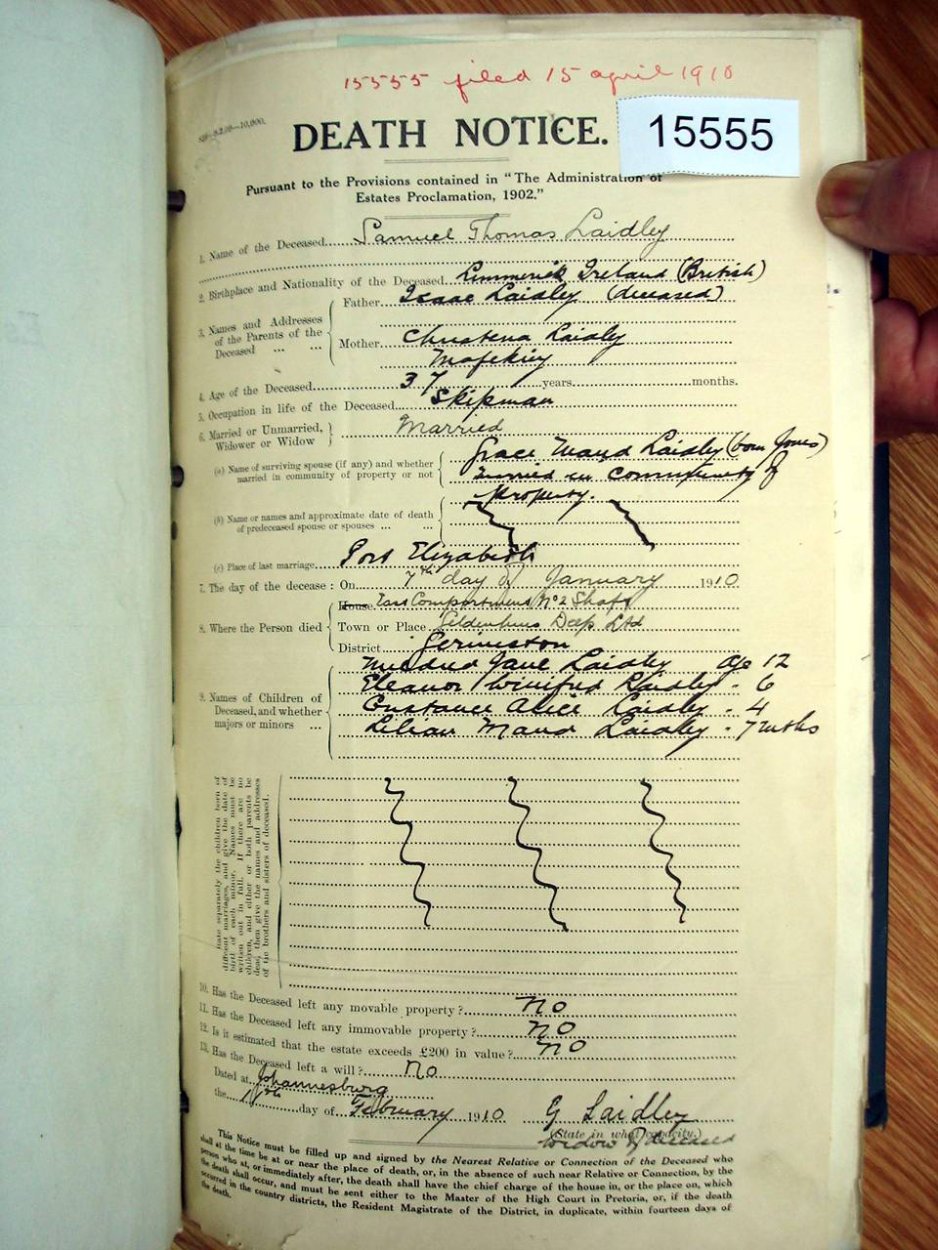 15555 filed 15 april 1910
DEATH NOTICE.
15555
Pursuant to the Provisions contained in "The Administration of
Estates Proclamation, 1902."
1. Name of the Deceased Samuel Thomas Laidley
2. Birthplace and Nationality of the Deceased Limmerick Ireland (British)
3. Names and Addresses of the Parents of the Deceased ... ...
Father Isaac Laidley (deceased)
Mother Christena Laidley
Mafeking
4. Age of the Deceased 37 years months.
5. Occupation in life of the Deceased Skipman
6. Married or Unmarried, Widower or Widow Married
(a) Name of surviving spouse (if any) and whether married in community of property or not
Grace Maud Laidley (born Jones)
married in community of
property.
(b) Name or names and approximate date of death of predeceased spouse or spouses ... ...
(c) Place of last marriage Port Elizabeth
7. The day of the decease: On 7th day of January 1910
8. Where the Person died
House East Compartment No 2 Shaft
Town or Place Geldenhuis Deep Ltd
District Germiston
9. Names of Children of Deceased, and whether majors or minors ...
Mildred Jane Laidley age 12
Eleanor Winifred Laidley - 6
Constance Alice Laidley - 4
Lilian Maud Laidley - 7 mths
State separately the children born of
different marriages, and give the date of
birth of each minor. Names must be
written out in full. If there are no
children, and either or both parents be
dead, then give the names and addresses
of the brothers and sisters of deceased.
10. Has the Deceased left any movable property? No
11. Has the Deceased left any immovable property? No
12. Is it estimated that the estate exceeds £200 in value? No
13. Has the Deceased left a will? No
Dated at Johannesburg
the 11th day of February 1910 G Laidley
(State in what capacity.)
widow of deceased
This Notice must be filled up and signed by the Nearest Relative or Connection of the Deceased who
shall at the time be at or near the place of death, or, in the absence of such near Relative or Connection, by the
person who at, or immediately after, the death shall have the chief charge of the house in, or the place on, which
the death shall occur, and must be sent either to the Master of the High Court in Pretoria, or, if the death
occurred in the country districts, the Resident Magistrate of the District, in duplicate, within fourteen days of
the death.